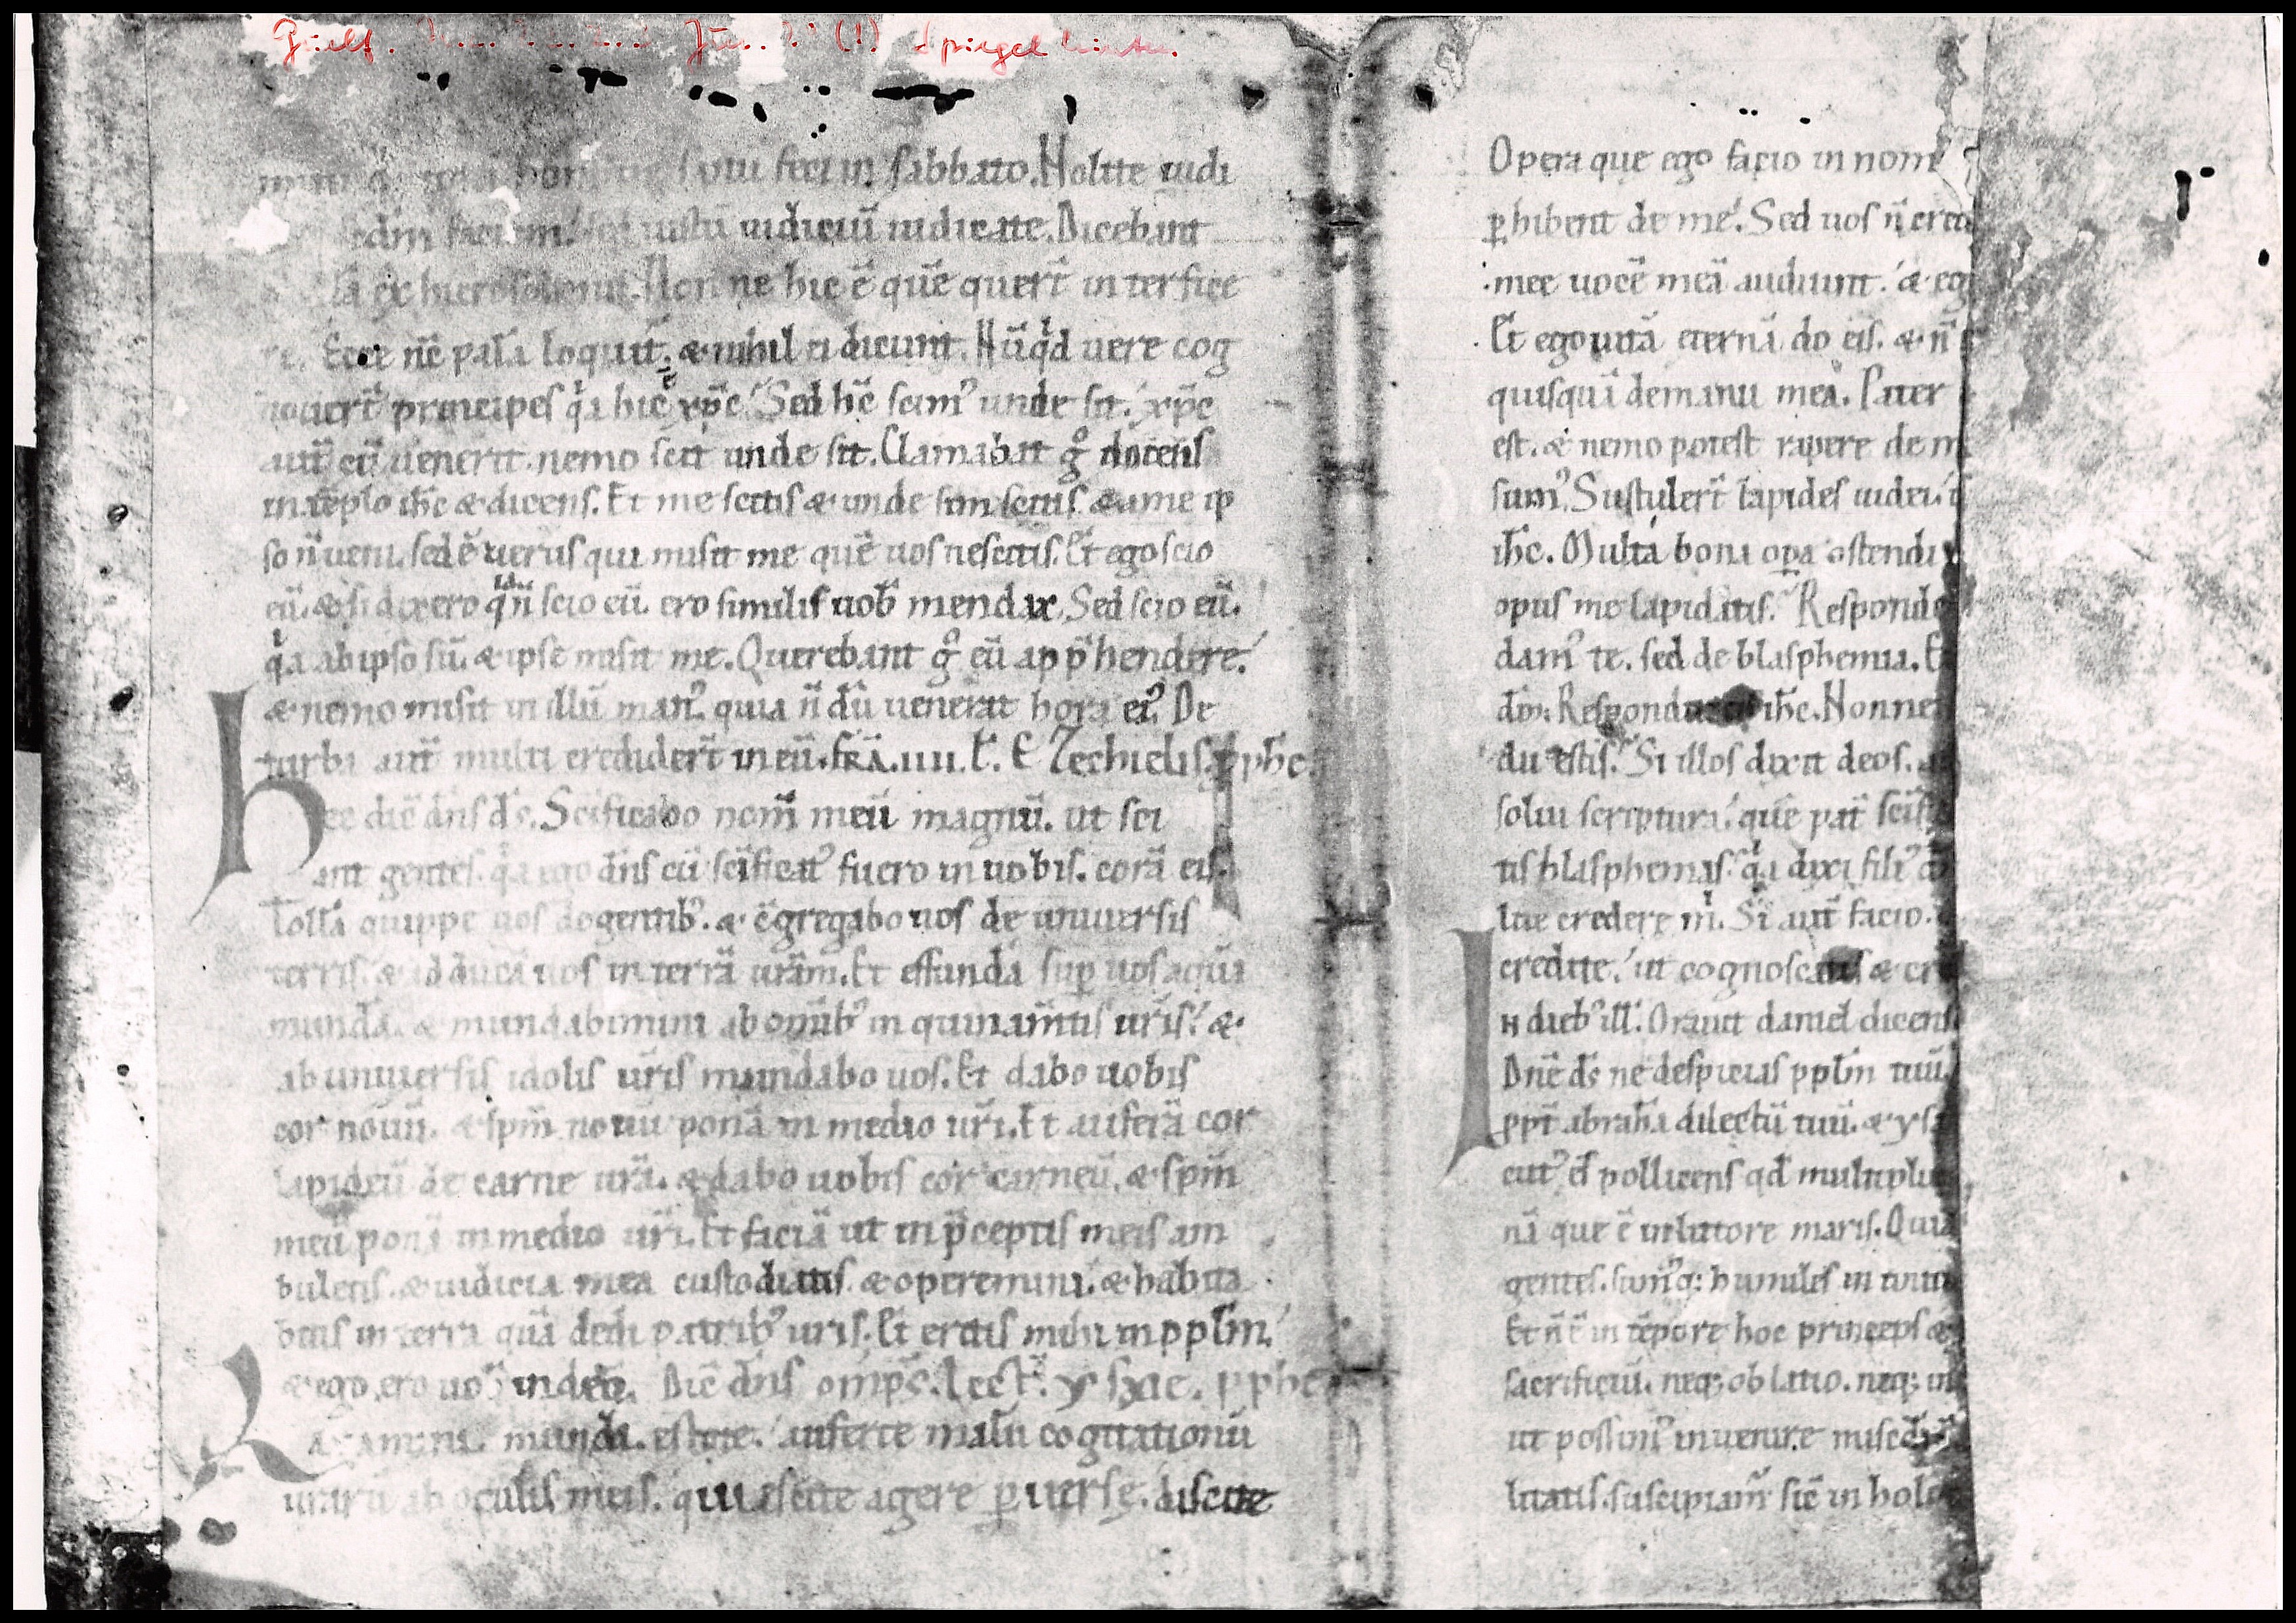 Spiegel hinten
hominē sanū feci in sabbato. Nolite iudi
faciem. iustū iudiciū iudicate. Dicebant
ex hierosolimis. Nonne hic ē quē quert̄ interfice
re. Ecce n̄c palā loquit̄. & nihil ei dicunt. Nūqͥd uere cog
nouert̄ principes qͥa hic ē xp̄c. Sed hc̄ scimꝰ unde sit. xp̄c
aut̄ cū uenerit. nemo scit unde sit. Clamabat gͦ docens
in tēplo ih̄c & dicens. Et me scitis & unde sim scitis. & a me ip
so n̄ ueni. sed ē uerus qui misit me quē uos nescitis. Et ego scio
eū. & si dixero qͥa n̄ scio eū. ero similis uob̄ mendax. Sed scio eū.
qͥa ab ipso sū. & ipse misit me. Querebant gͦ eū app̄hendere.
& nemo misit in illū manꝰ. quia n̄dū uenerat hora eiꝰ. De
turba aut̄ multi credidert̄ in eū. FR̄A. IIII. L̄. Ezechielis. pph̄e.
Hec dic̄ dn̄s ds̄. Sc̄ificabo nom̄ meū magnū. ut sci
ant gentes. qͥa ego dn̄s cū sc̄ificatꝰ fuero in uobis. corā eis.
Tollā quippe uos de gentibꝰ. & c̄gregabo uos de uniuersis
terris. & adducā uos in terrā ur̄am. Et effundā sup̱ uos aquā
mundā. & mundabimini ab om̄ibꝰ inquinam̄tis ur̄is. &
ab uniuersis idolis ur̄is mundabo uos. Et dabo uobis
cor nouū. & sp̄m nouū ponā in medio ur̄i. Et auferā cor
lapideū de carne ur̄a. & dabo uobis cor carneū. & sp̄m
meū ponā in medio ur̄i. Et faciā ut in p̄ceptis meis am
buletis. & iudicia mea custodiatis. & operemini. & habita
bitis in terra quā dedi patribꝰ ur̄is. Et eritis mihi in pplm̄.
& ego ero uob̄ in dm̄. Dic̄ dn̄s omp̄s. Lect̄. ysaie. pph̄e
Lauamini. mundi. estote. auferte malū cogitationū
urarū ab oculis meis. quiescite agere p̱uerse. discite
Opera que ego facio in nom
p̱hibent de me. Sed uos n̄ cred
mee uocē meā audiunt. & eg
Et ego uitā eternā do eis. & n̄
quisquā de manu mea. Pater
est. & nemo potest rapere de m
sumꝰ. Sustulert̄ lapides iudei. u
ih̄c. Multa bona op̱a ostendi
opus me lapidatis. Responde
damꝰ te. sed de blasphemia. E
dm̄. Respondit ih̄c. Nonne
dii estis. Si illos dixit deos.
solui scriptura. quē pat̄ sc̄if
tis blasphemas. qͥa dixi filiꝰ d
lite credere m̄. Si aut̄ facio.
credite. ut cognoscatis & cre
In diebꝰ ill̄. Orauit daniel dicens
Dn̄e ds̄ ne despicias pplm̄ tuū
ppt̄ abrahā dilectū tuū. & ysa
cutꝰ es pollicens qd̄ multiplic
nā que ē in littore maris. Quia
gentes. sumꝰq; humiles in uniu
Et n̄ ē in tēpore hoc princeps &
sacrificiū. neq; oblatio. neq; in
ut possimꝰ inuenire misc̄dia
litatis. suscipiam̄ sic̄ in holo